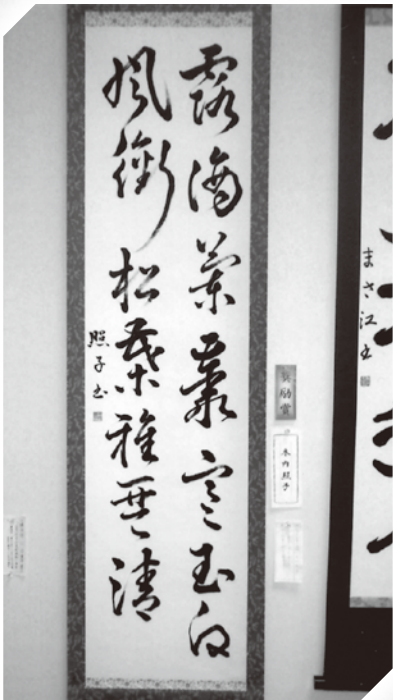 露滴蘭叢寒玉白
風銜松葉雅琴清
照子書
奨励賞
木内照子
まさ江書